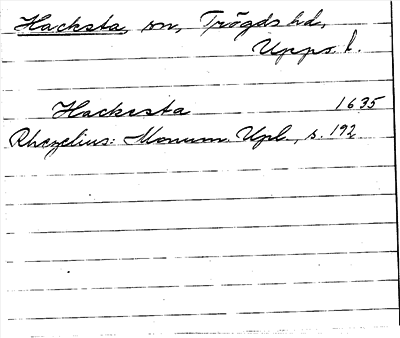 Hacksta, sn, Trögds hd,
Upps. l.
Hacksta 1635
Rhezelius: Monum. Upl., s. 192